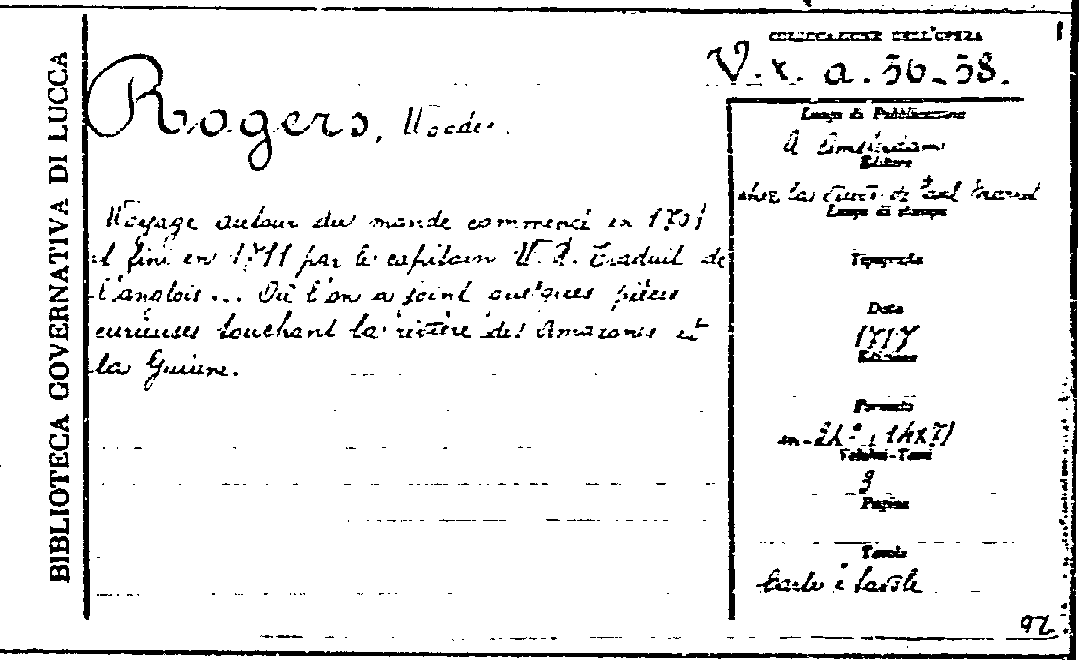 BIBLIOTECA GOVERNATIVA DI LUCCA
COLLOCAZIONE DELL'OPERA
V. x. a. 56-58.
Rogers, Woodes.
Voyage autour du monde commencé en 1708
et fini en 1711 par le capitain W. R. Traduit de
l'anglois... Où l'on a joint quelques pièces
curieuses touchant la rivière des Amazones et
la Guiane.
Luogo di Pubblicazione
A Amsterdam
Editore
chez la
Luogo di stampa
Tipografia
Data
1717
Edizione
Formato
in-24°
Volumi-Tomi
3
Pagine
Tavole
Carte e tavole
92